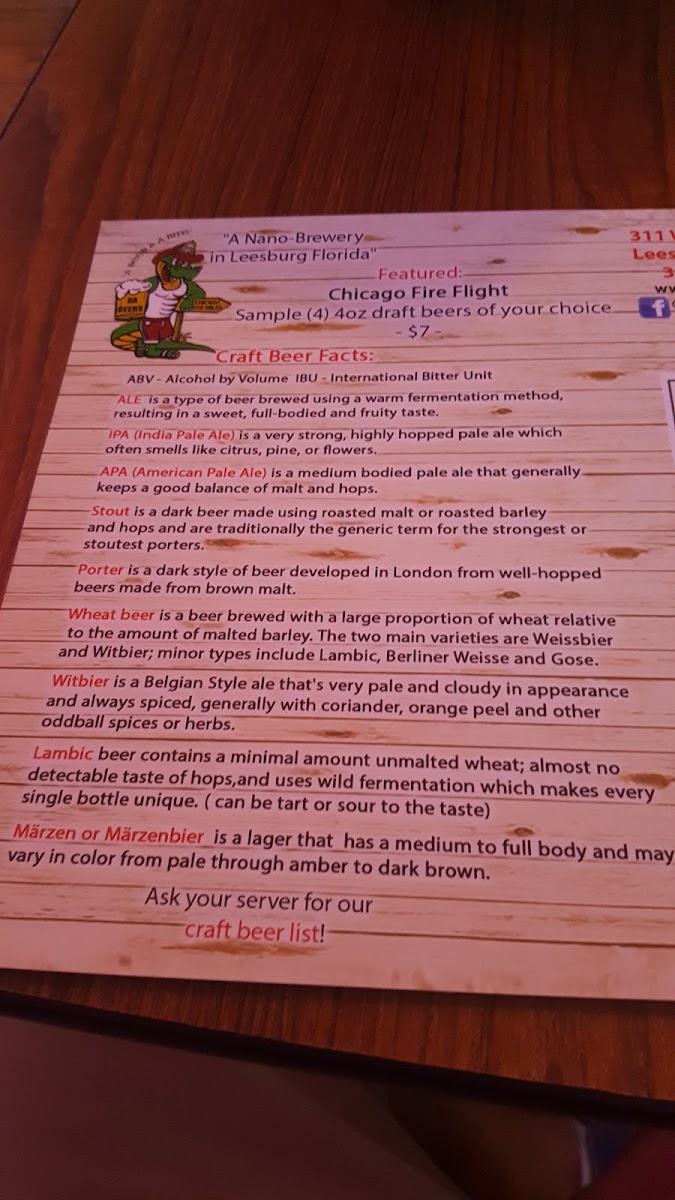 "A Nano-Brewery
in Leesburg Florida"
311
Lees
3
ww
Featured:
Chicago Fire Flight
Sample (4) 4oz draft beers of your choice
- $7 -
DA
BEERS
CHICAGO
f
Craft Beer Facts:
ABV - Alcohol by Volume IBU - International Bitter Unit
ALE is a type of beer brewed using a warm fermentation method,
resulting in a sweet, full-bodied and fruity taste.
IPA (India Pale Ale) is a very strong, highly hopped pale ale which
often smells like citrus, pine, or flowers.
APA (American Pale Ale) is a medium bodied pale ale that generally
keeps a good balance of malt and hops.
Stout is a dark beer made using roasted malt or roasted barley
and hops and are traditionally the generic term for the strongest or
stoutest porters.
Porter is a dark style of beer developed in London from well-hopped
beers made from brown malt.
Wheat beer is a beer brewed with a large proportion of wheat relative
to the amount of malted barley. The two main varieties are Weissbier
and Witbier; minor types include Lambic, Berliner Weisse and Gose.
Witbier is a Belgian Style ale that's very pale and cloudy in appearance
and always spiced, generally with coriander, orange peel and other
oddball spices or herbs.
Lambic beer contains a minimal amount unmalted wheat; almost no
detectable taste of hops,and uses wild fermentation which makes every
single bottle unique. ( can be tart or sour to the taste)
Märzen or Märzenbier is a lager that has a medium to full body and may
vary in color from pale through amber to dark brown.
Ask your server for our
craft beer list!